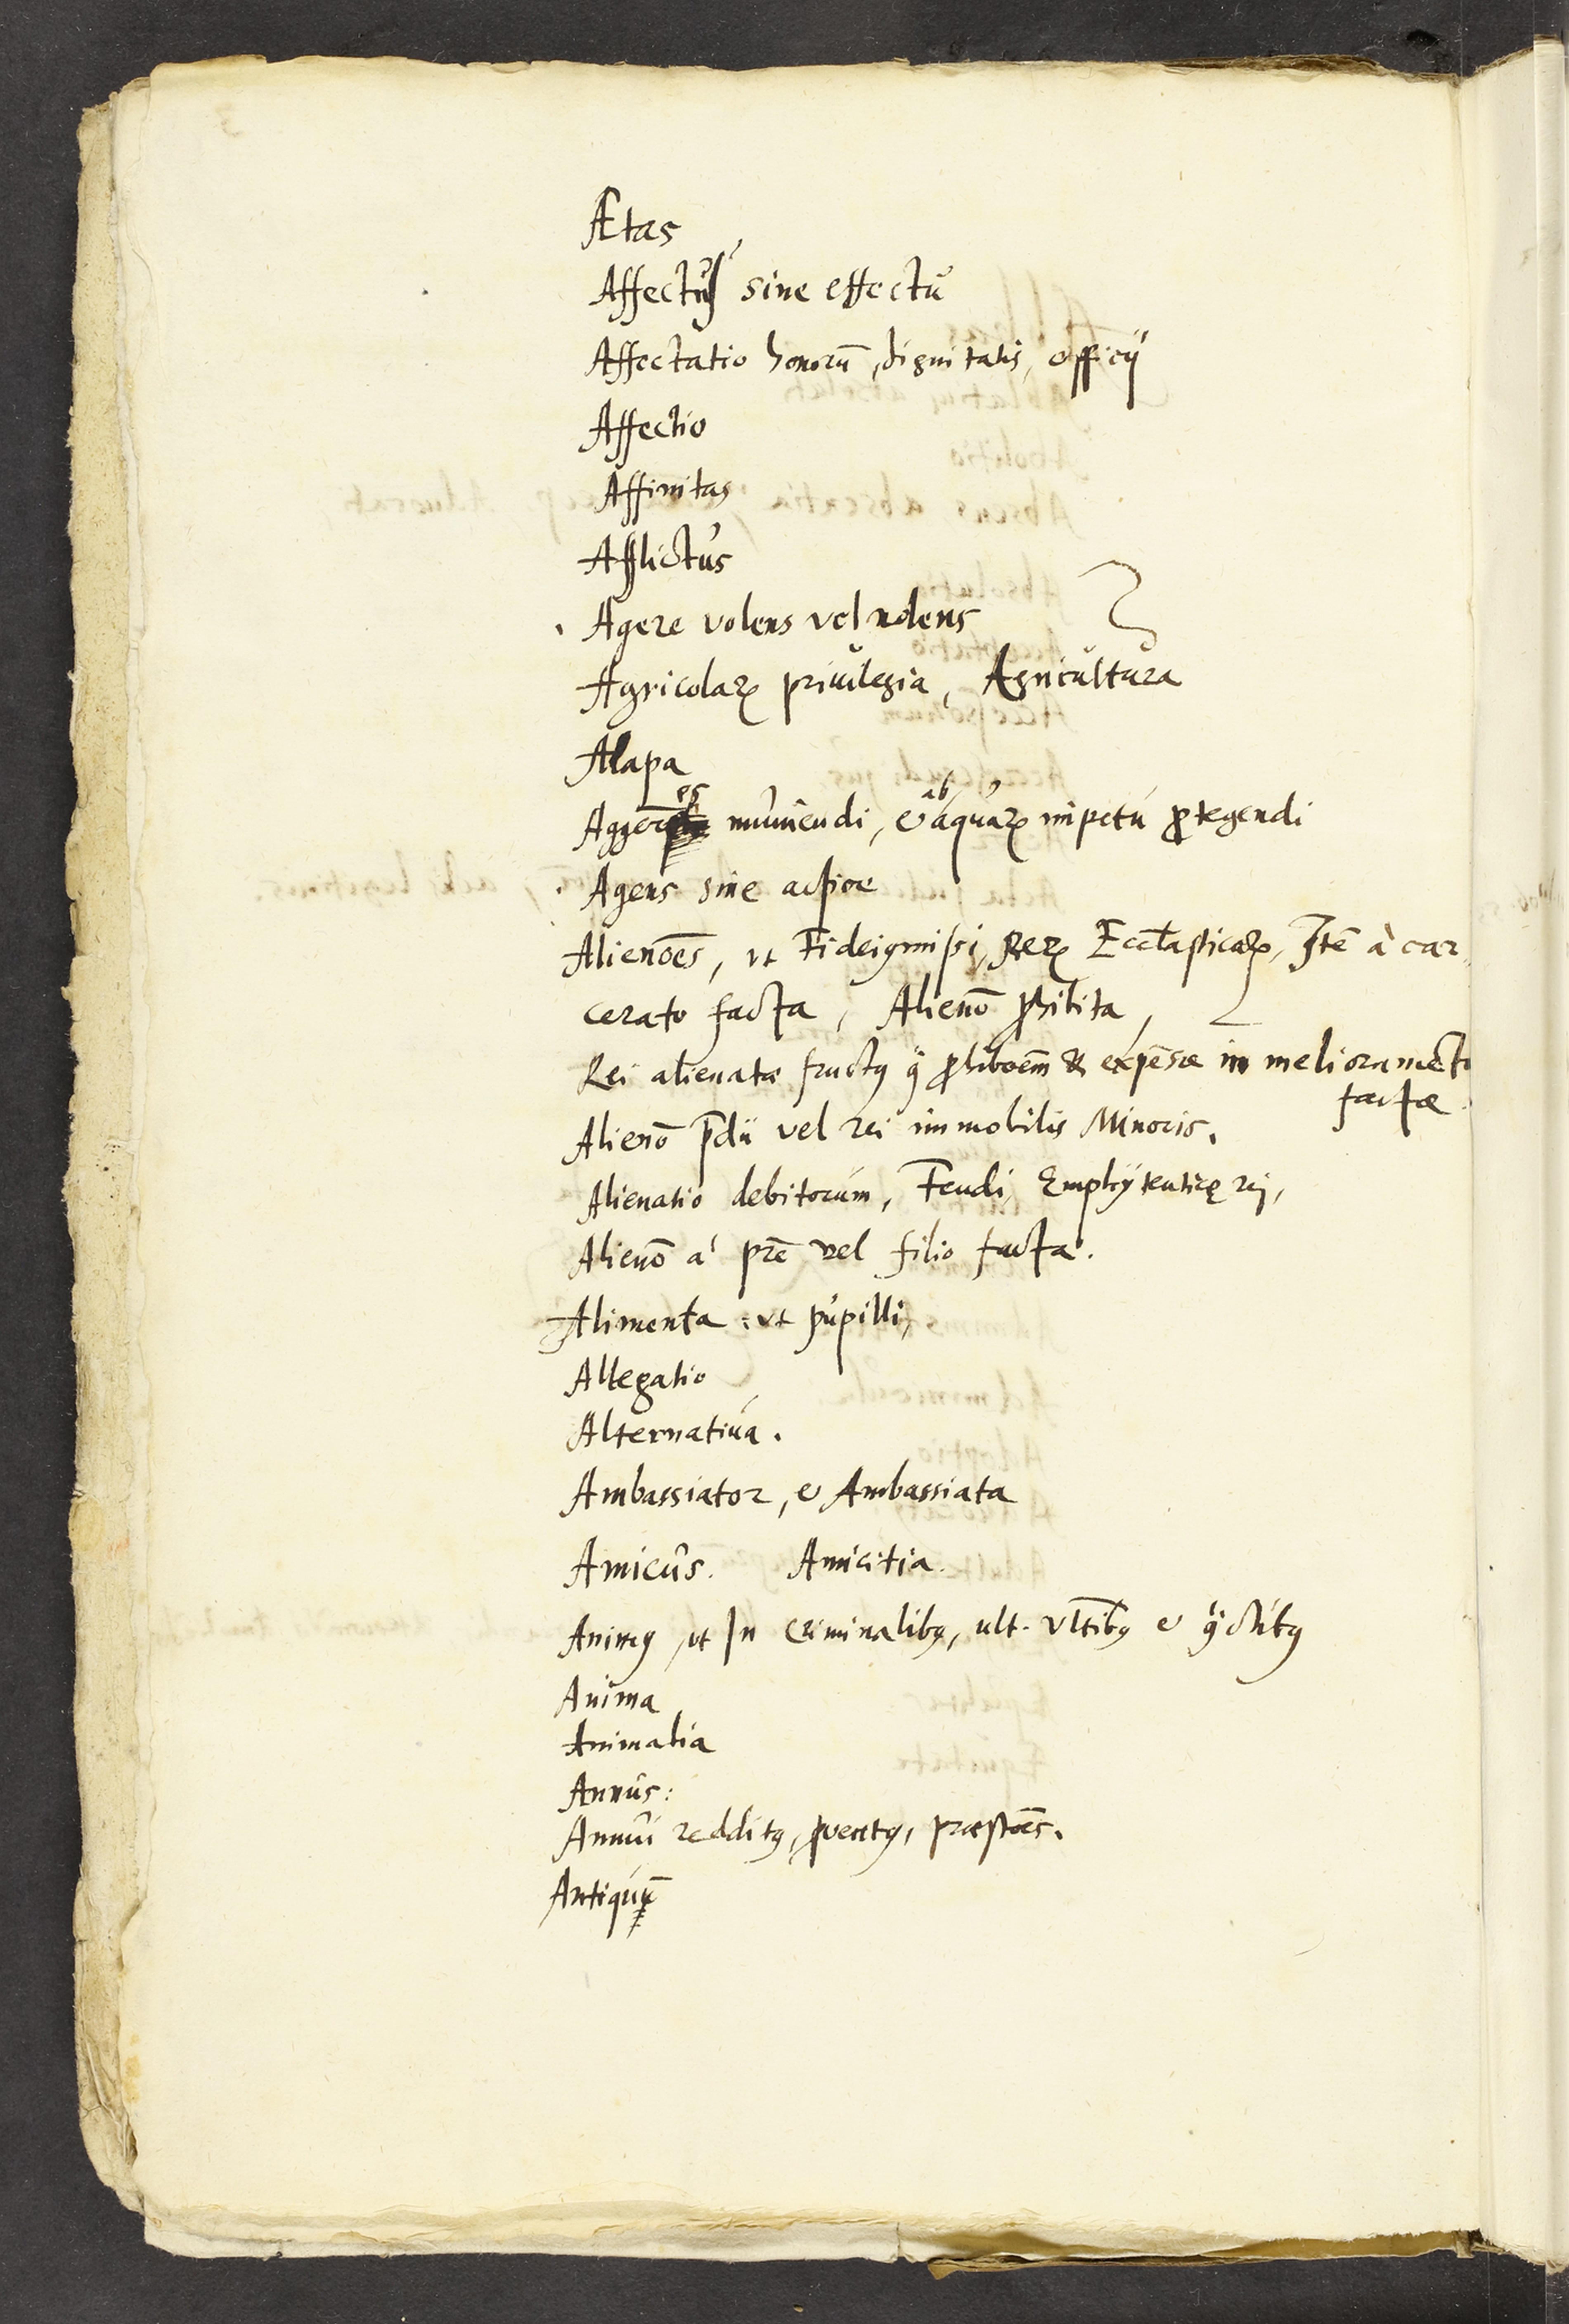 Ætas
Affectus sine effectu
Affectatio honorū, dignitatis, officij
Affectio
Affinitas
Afflictus
Agere volens vel nolens
Agricolaꝝ privilegia, Agricultura
Alapa
Aggeres muniendi, & ab aquaꝝ impetu ꝓtegendi
Agens sine actione
Alienōes, ut Fideicommissi, Reꝝ Eccl̄asticaꝝ, Itē à car
cerato facta, Alienō ꝓhibita,
Rei alienatæ fructꝰ ꝓhiboēm & expēsæ in melioramēto
factæ
Alienō p̄dii vel rei immobilis Minoris.
Alienatio debitorum, Feudi, Emphyteuticę rei,
Alienō a prē vel filio facta.
Alimenta: ut pupilli,
Allegatio
Alternativa.
Ambassiator, & Ambassiata
Amicus. Amicitia.
Animꝰ, ut In Criminalibꝰ, ult. vltībꝰ &
Anima
Animalia
Annus:
Annui redditꝰ, ꝓventꝰ, præstōēs.
Antiquū